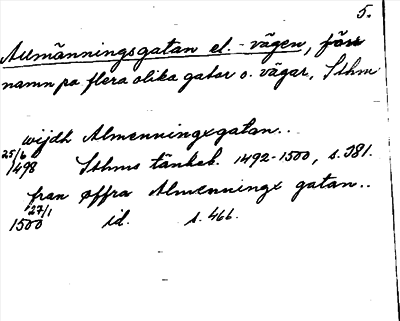 5.
Allmänningsgatan el. -vägen, förr
namn på flera olika gator o. vägar, Sthm
wijdh Almenningxgatan..
25/6
1498 Sthms tänkeb. 1492-1500, s. 381.
fran øffra Almenningx gatan..
27/1
1500 id. s. 466.